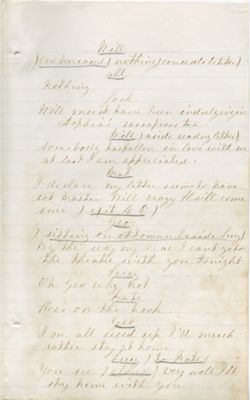 Will
) embarrassed ( nothing) conceals letter)
all
Nothing
Josh
Will must have been indulging in
Sophia's sarsaparilla
Will ) aside reading letter)
somebody has fallen in love with me
at last I am appreciated.
Mat
I declare my letter seems to have
set Master Will crazy
sure ) exit
Geo
) sitting on ottoman beside Lucy)
By the way my dear I cant go to
the theatre with you tonight
Lucy
Oh Geo why not
Kate
Hes on the hook.
Geo
I'm all used up I'd much
rather stay at home
Lucy ) to Kate)
You see ) aloud ( very well I'll
stay home with you.